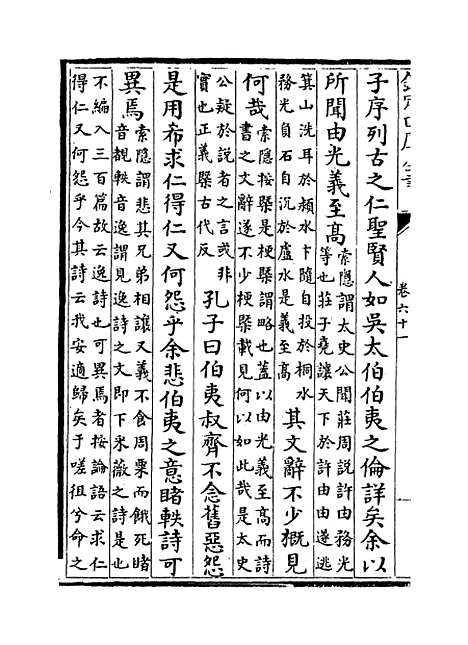 欽定四庫全書
卷六十一
子序列古之仁聖賢人如吳太伯伯夷之倫詳矣余以
所聞由光義至高索隱謂太史公聞莊周說許由務光
等也莊子堯讓天下於許由由遂逃
箕山洗耳於潁水卞隨自投於桐水
務光負石自沉於廬水是義至高其文辭不少概見
何哉索隱按槩是梗槩謂略也蓋以由光義至高而詩
書之文辭遂不少梗槩載見何以如此哉是太史
公疑於說者之言或非
實也正義槩古代反孔子曰伯夷叔齊不念舊惡怨
是用希求仁得仁又何怨乎余悲伯夷之意睹軼詩可
異焉索隱謂悲其兄弟相讓又義不食周粟而餓死睹
音覩軼音逸謂見逸詩之文即下米薇之詩是也
不編入三百篇故云逸詩也可異焉者按論語云求仁
得仁又何怨乎今其詩云我安適歸矣于嗟徂兮命之